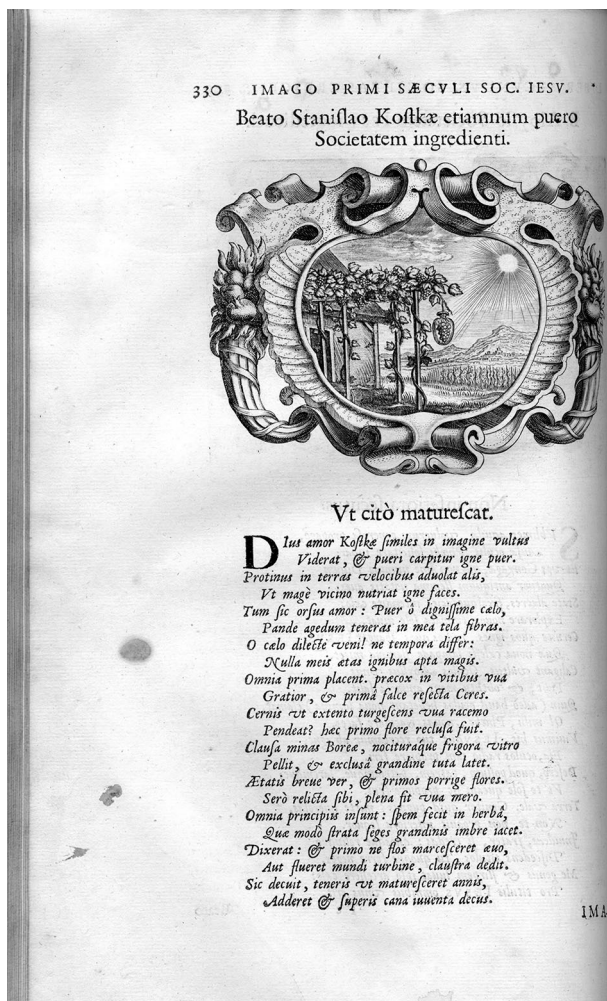 330 IMAGO PRIMI SÆCVLI SOC. IESV.
Beato Staniſlao Koſtkæ etiamnum puero
Societatem ingredienti.
Vt citò matureſcat.
DIus amor Koſtkæ ſimiles in imagine vultus
Viderat, & pueri carpitur igne puer.
Protinus in terras velocibus aduolat alis,
Vt magè vicino nutriat igne faces.
Tum ſic orſus amor: Puer ô digniſſime cælo,
Pande agedum teneras in mea tela fibras.
O cælo dilecte veni! ne tempora differ:
Nulla meis ætas ignibus apta magis.
Omnia prima placent. præcox in vitibus vua
Gratior, & primâ falce reſecta Ceres.
Cernis vt extento turgeſcens vua racemo
Pendeat? hæc primo flore recluſa fuit.
Clauſa minas Boreæ, nocituraque frigora vitro
Pellit, & excluſâ grandine tuta latet.
Ætatis breue ver, & primos porrige flores.
Serò relicta ſibi, plena fit vua mero.
Omnia principiis inſunt: ſpem fecit in herbâ,
Quæ modò ſtrata ſeges grandinis imbre iacet.
Dixerat: & primo ne flos marceſceret æuo,
Aut flueret mundi turbine, clauſtra dedit.
Sic decuit, teneris vt matureſceret annis,
Adderet & ſuperis cana iuuenta decus.
IMA